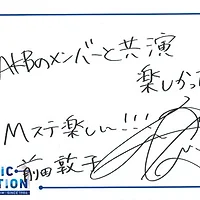 AKBのメンバーと共演
楽しかっ
Mステ楽しい!!!
前田敦子
IC
TION
SINCE 1986